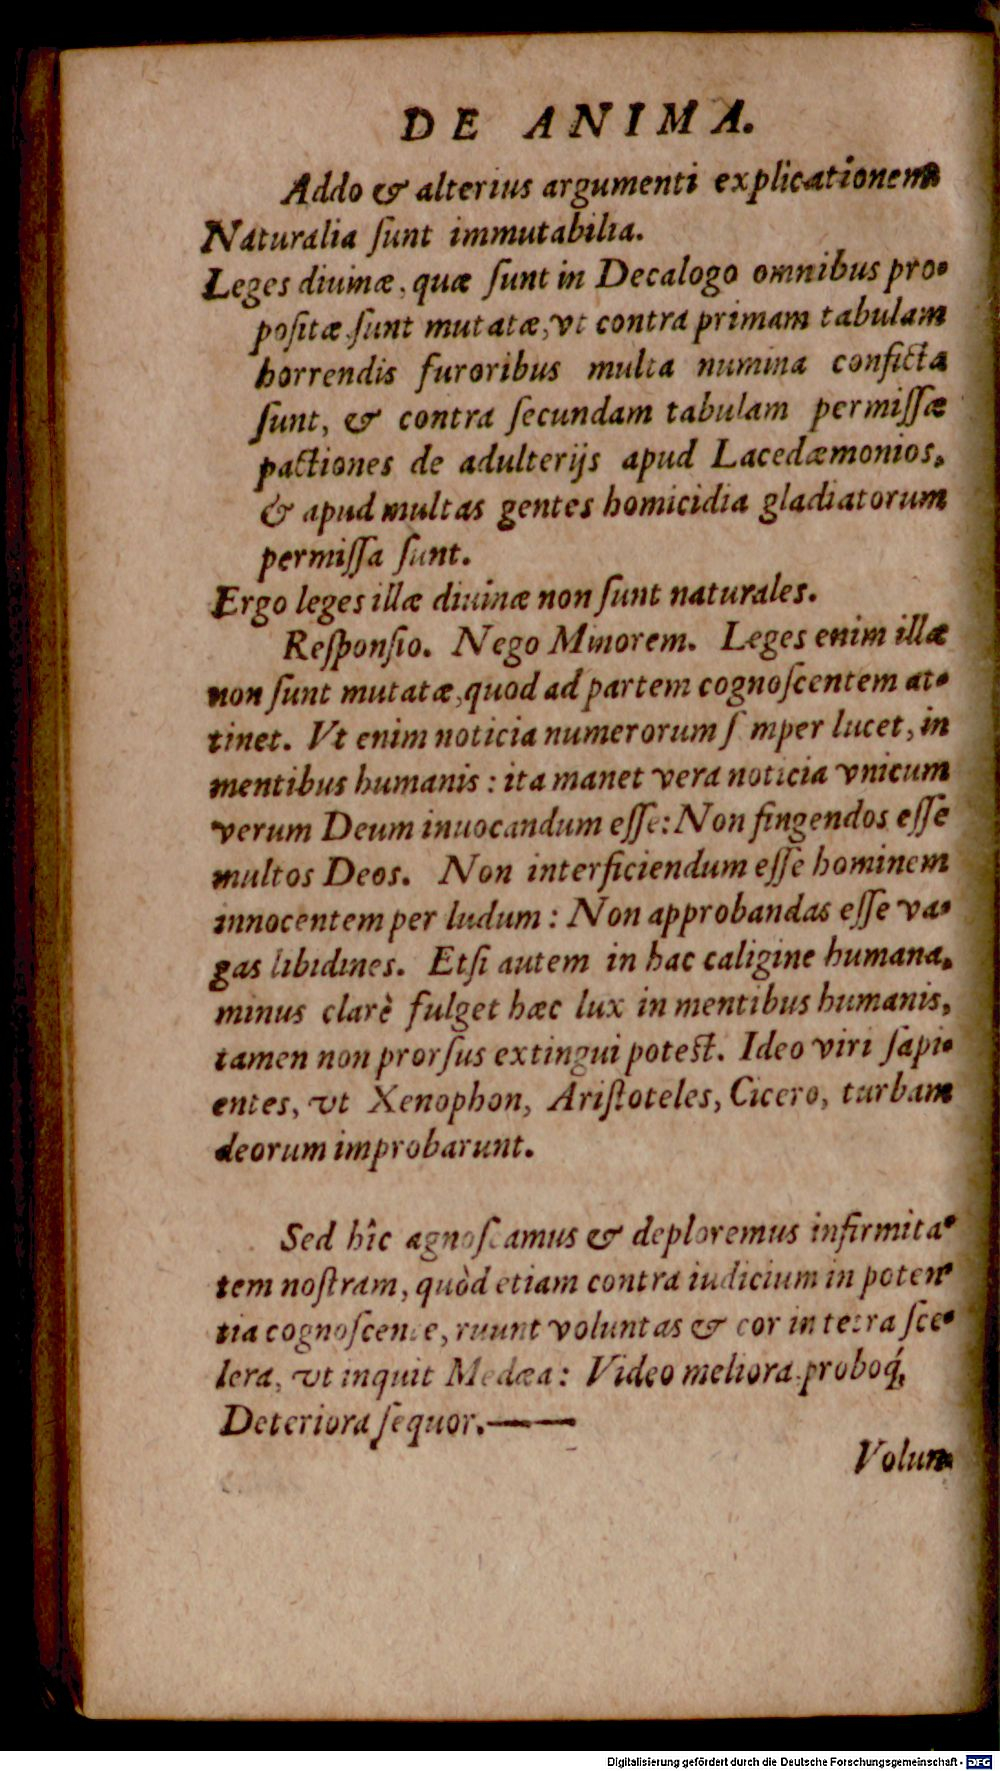 DE ANIMA.
Addo & alterius argumenti explicationem
Naturalia ſunt immutabilia.
Leges diuinæ, quæ ſunt in Decalogo omnibus pro-
poſitæ ſunt mutatæ, vt contra primam tabulam
horrendis furoribus multa numina conficta
ſunt, & contra ſecundam tabulam permiſſæ
pactiones de adulterijs apud Lacedæmonios,
& apud multas gentes homicidia gladiatorum
permiſſa ſunt.
Ergo leges illæ diuinæ non ſunt naturales.
Reſponſio. Nego Minorem. Leges enim illæ
non ſunt mutatæ, quod ad partem cognoſcentem at-
tinet. Vt enim noticia numerorum ſ mper lucet, in
mentibus humanis : ita manet vera noticia vnicum
verum Deum inuocandum eſſe: Non fingendos eſſe
multos Deos. Non interficiendum eſſe hominem
innocentem per ludum : Non approbandas eſſe va-
gas libidines. Etſi autem in hac caligine humana,
minus clarè fulget hæc lux in mentibus humanis,
tamen non prorſus extingui poteſt. Ideo viri ſapi-
entes, vt Xenophon, Ariſtoteles, Cicero, turbam
deorum improbarunt.
Sed hîc agnoſcamus & deploremus infirmita-
tem noſtram, quòd etiam contra iudicium in poten-
tia cognoſcente, ruunt voluntas & cor in tetra ſce-
lera, vt inquit Medæa : Video meliora proboq́,
Deteriora ſequor.——
Volun-
Digitalisierung gefördert durch die Deutsche Forschungsgemeinschaft - DFG